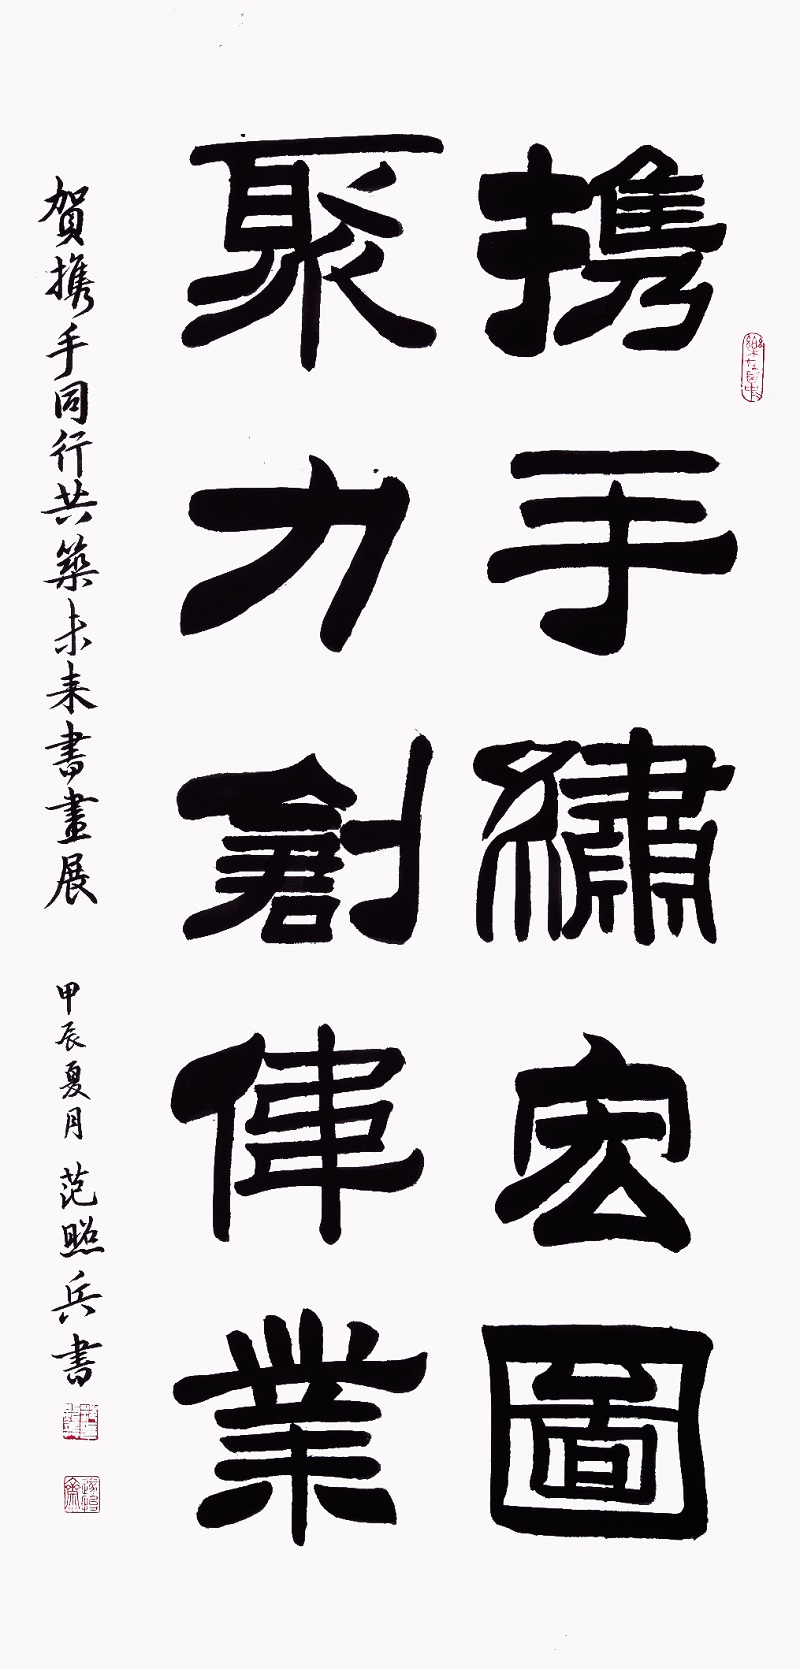 携手繡宏圖
聚力創偉業
賀携手同行共築未来書畫展
甲辰夏月 范照兵書